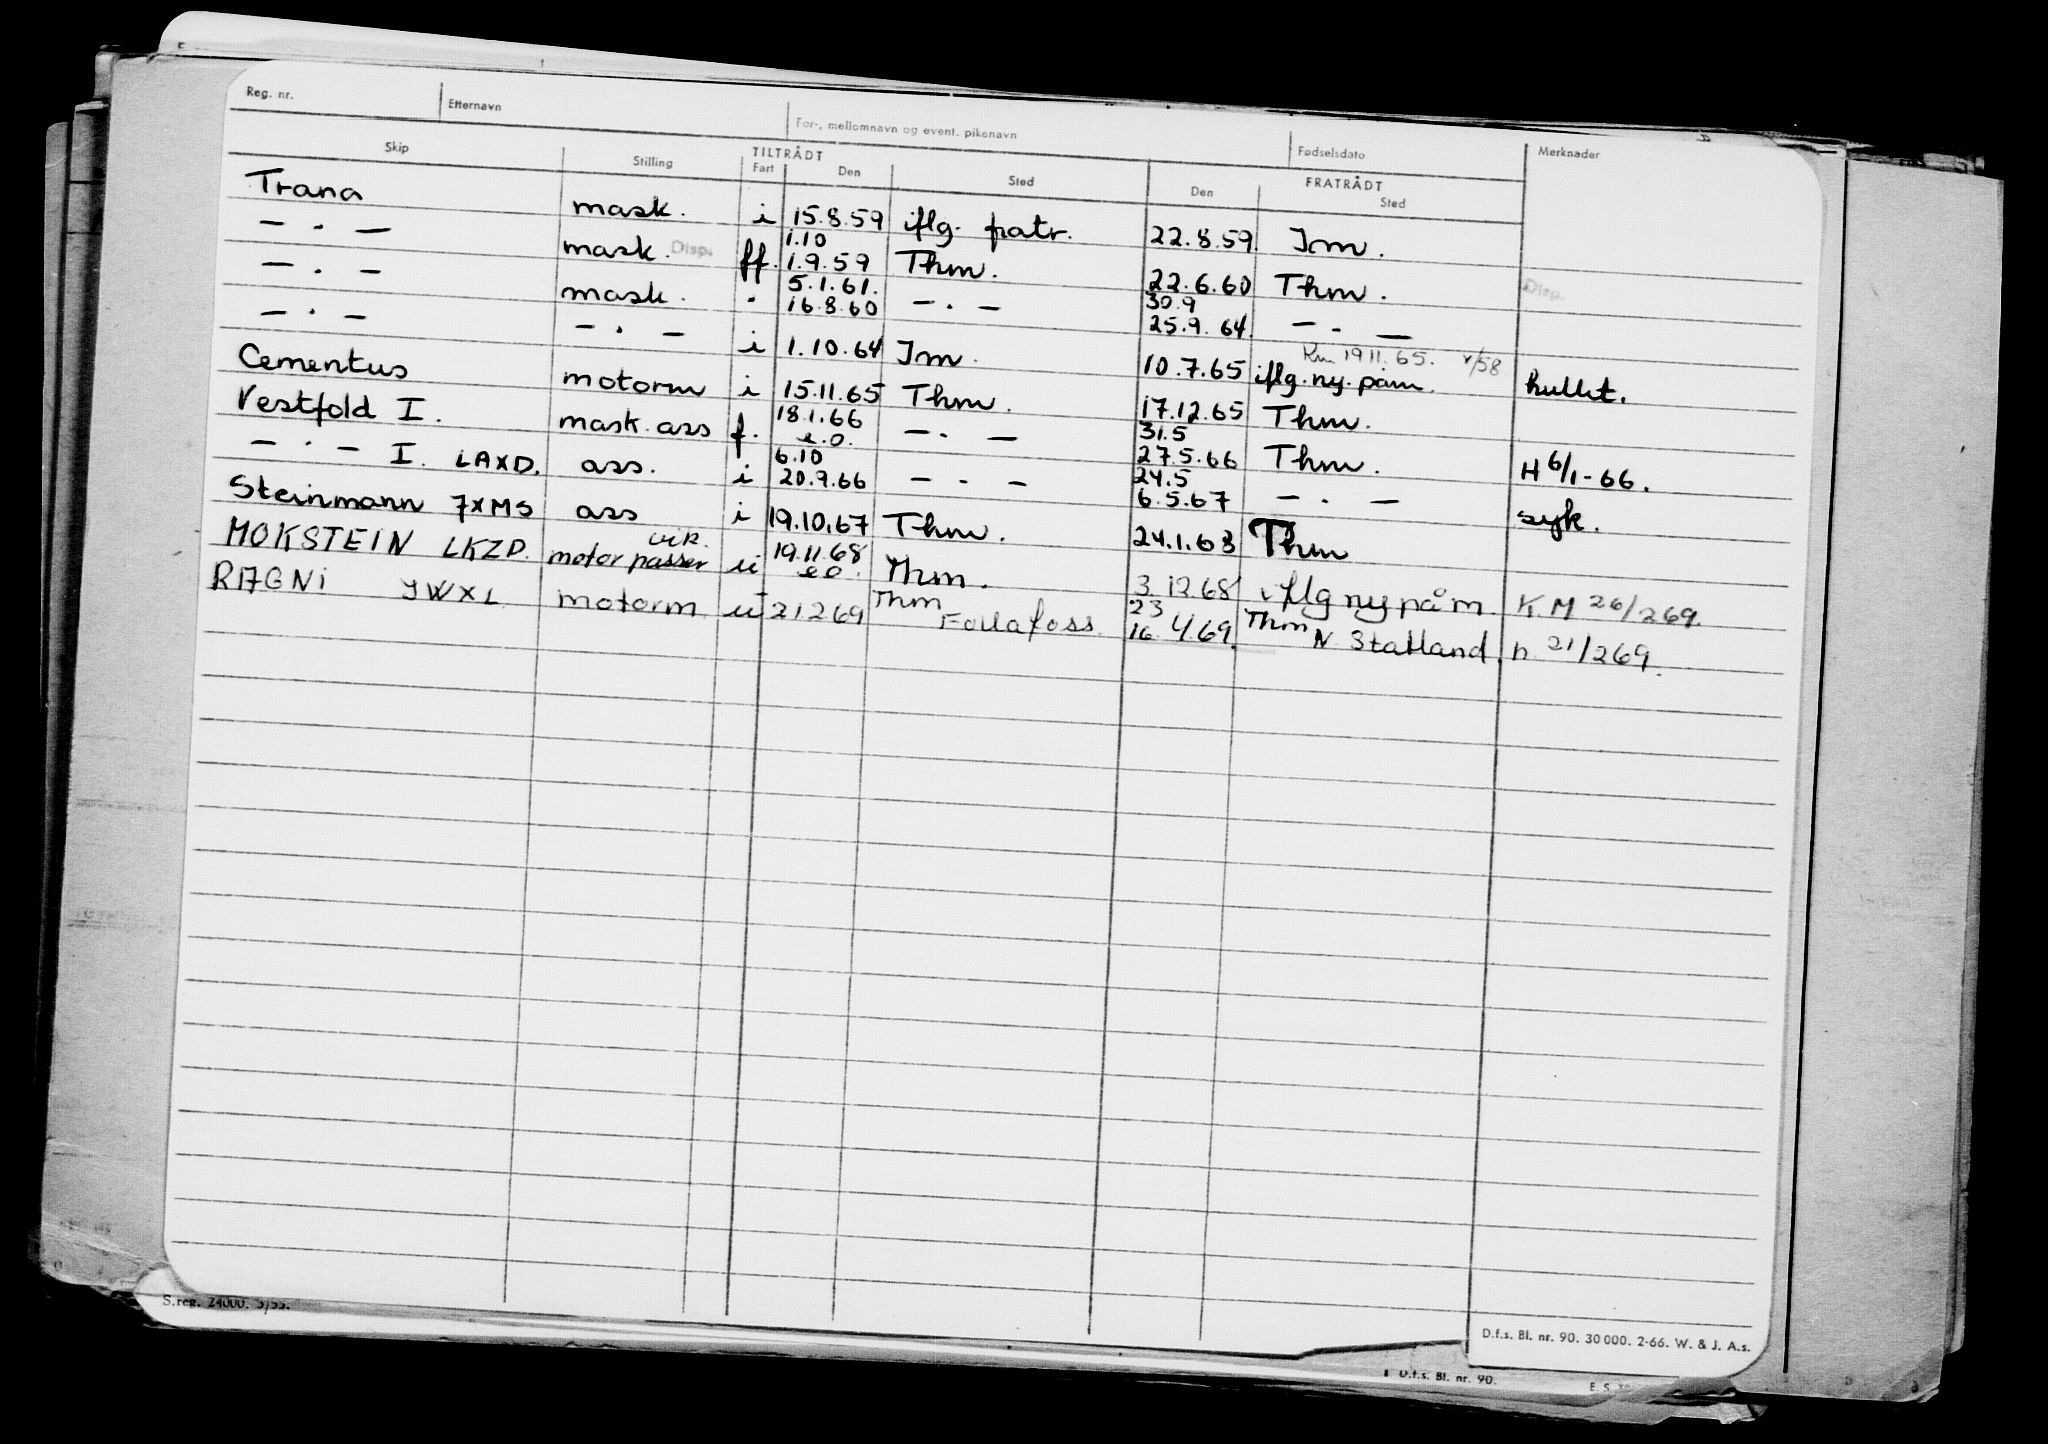 Reg. nr. Etternavn For-, mellomnavn og event. pikenavn Fødselsdato Merknader
Skip Stilling TILTRÅDT FRATRÅDT
Fart Den Sted Den Sted
Trana mask. i 15.8.59 iflg. patr. 22.8.59 Im.
— · — mask. Disp. ff. 1.10 1.9.59 Thm. 22.6.60 Thm. Disp.
— · — mask. · 5.1.61. 16.8.60 — · — 30.9 25.9.64. — · —
— · — — · — i 1.10.64 Im. 10.7.65 iflg. ny. påm. Km 19.11.65. hullet.
Cementus motorm i 15.11.65 Thm. 17.12.65 Thm.
Vestfold I. mask. ass f. 18.1.66 e.o. — · — 31.5 27.5.66 Thm. H 6/1-66.
— · — I. LAXD. ass. i 6.10 20.9.66 — · — 24.5 6.5.67 — · — syk.
Steinmann 7XMS ass i 19.10.67 Thm. 24.1.68 Thm
MOKSTEIN LKZD. vik. motorpasser ii 19.11.68 e.o. Thm. 3.12.68 iflg ny påm. K.M 26/269.
RAGNi JWXL motorm ii 21269 Thm Follafoss. 23 16. 4/69. Thm N. Statland. h. 21/269.
S.reg. 24000. 5/55.
D.f.s. Bl. nr. 90. 30 000. 2-66. W. & J. A.s.
D.f.s. Bl. nr. 90.